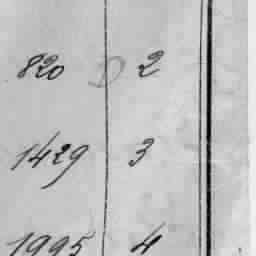 820 2
1429 3
1995 4